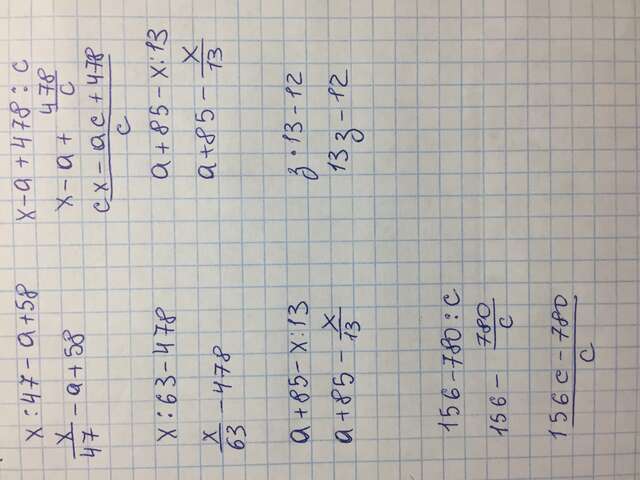 x:47-a+58
x/47-a+58
x:63-478
x/63-478
a+85-x:13
a+85-x/13
156-780:c
156-780/c
156c-780/c
x-a+478:c
x-a+478/c
cx-ac+478/c
a+85-x:13
a+85-x/13
z·13-12
13z-12